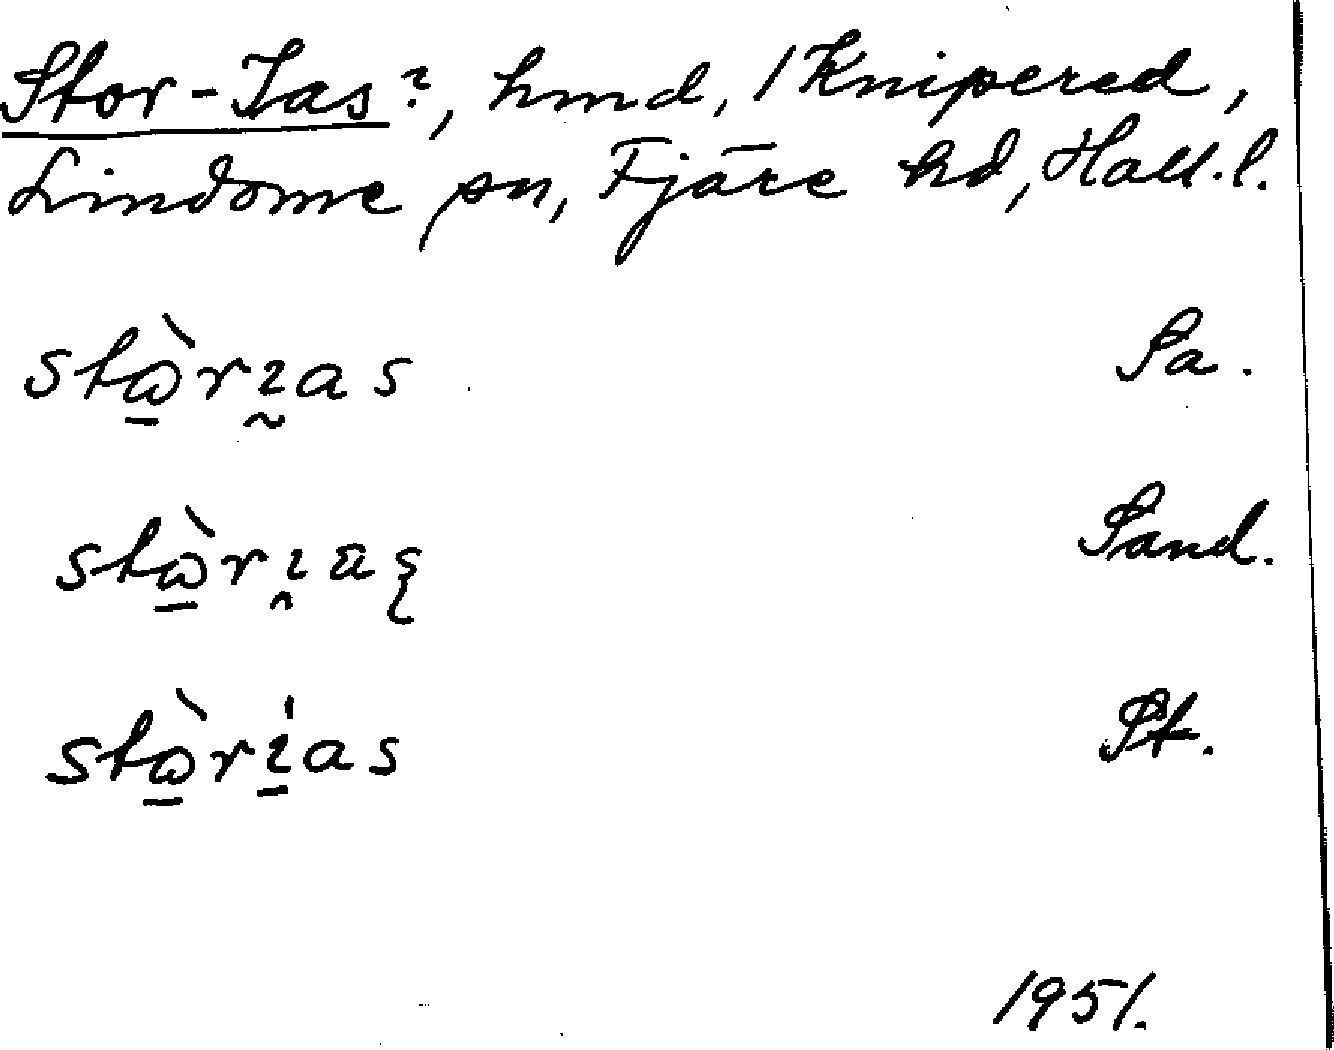 Stor-Ias?, hmd, 1 Knipered,
Lindome sn, Fjäre hd, Hall. l.
Sa.
Sand.
St.
1951.